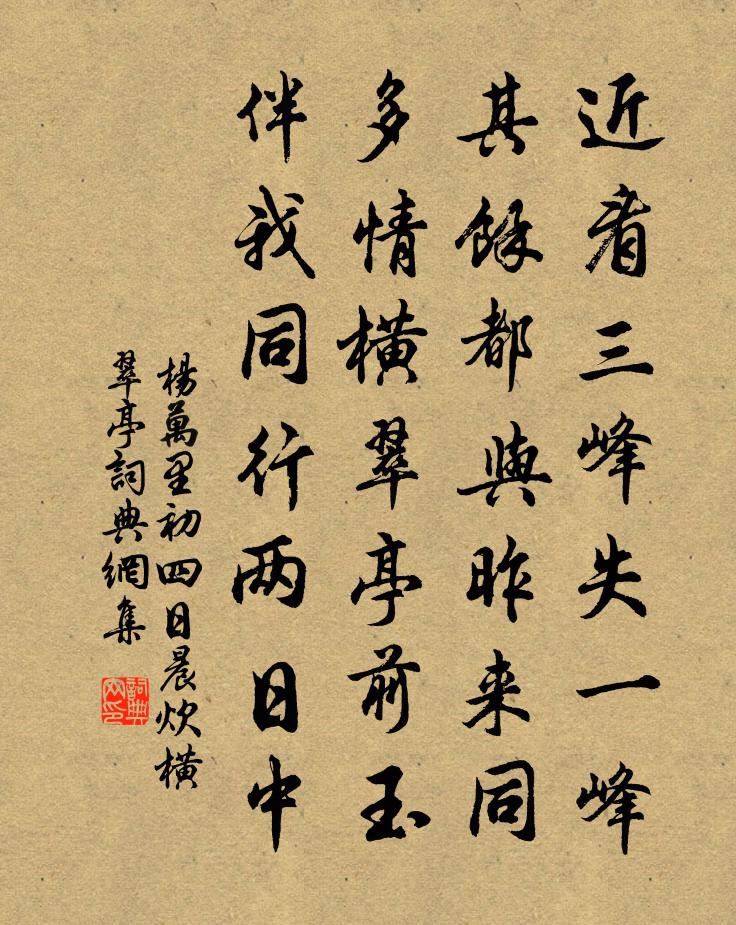 近看三峰失一峰
其餘都與昨来同
多情橫翠亭前玉
伴我同行两日中
楊萬里初四日晨炊橫
翠亭詞典網集
詞典
网印